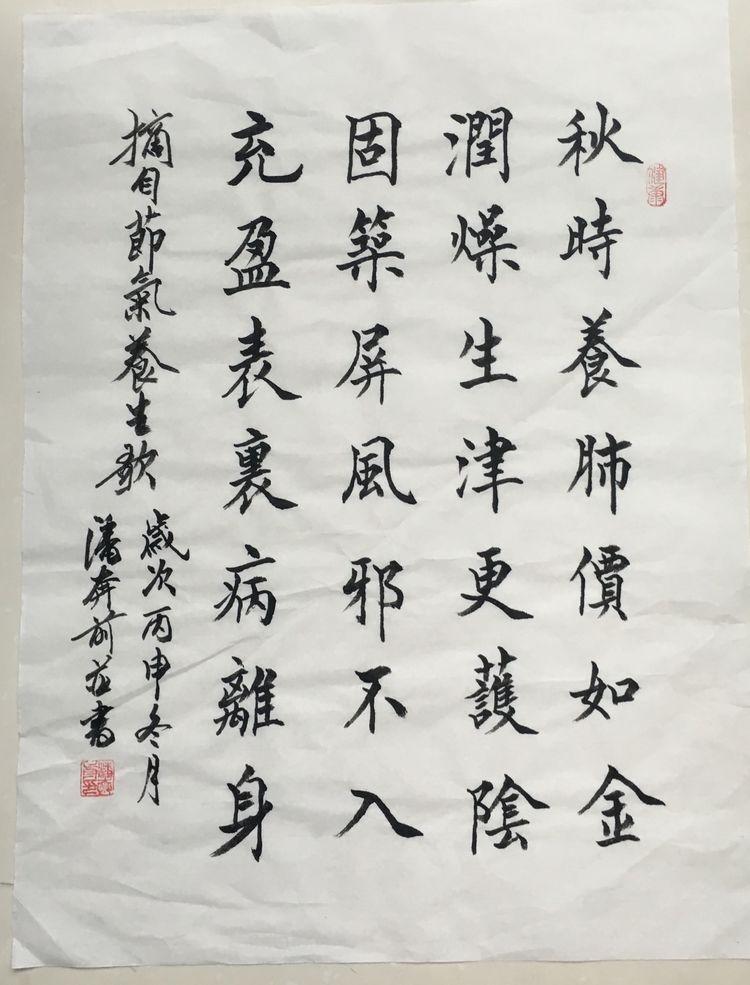 秋時養肺價如金
潤燥生津更護陰
固築屏風邪不入
充盈表裏病離身
摘自節氣養生歌
歲次丙申冬月
潘奔前並書